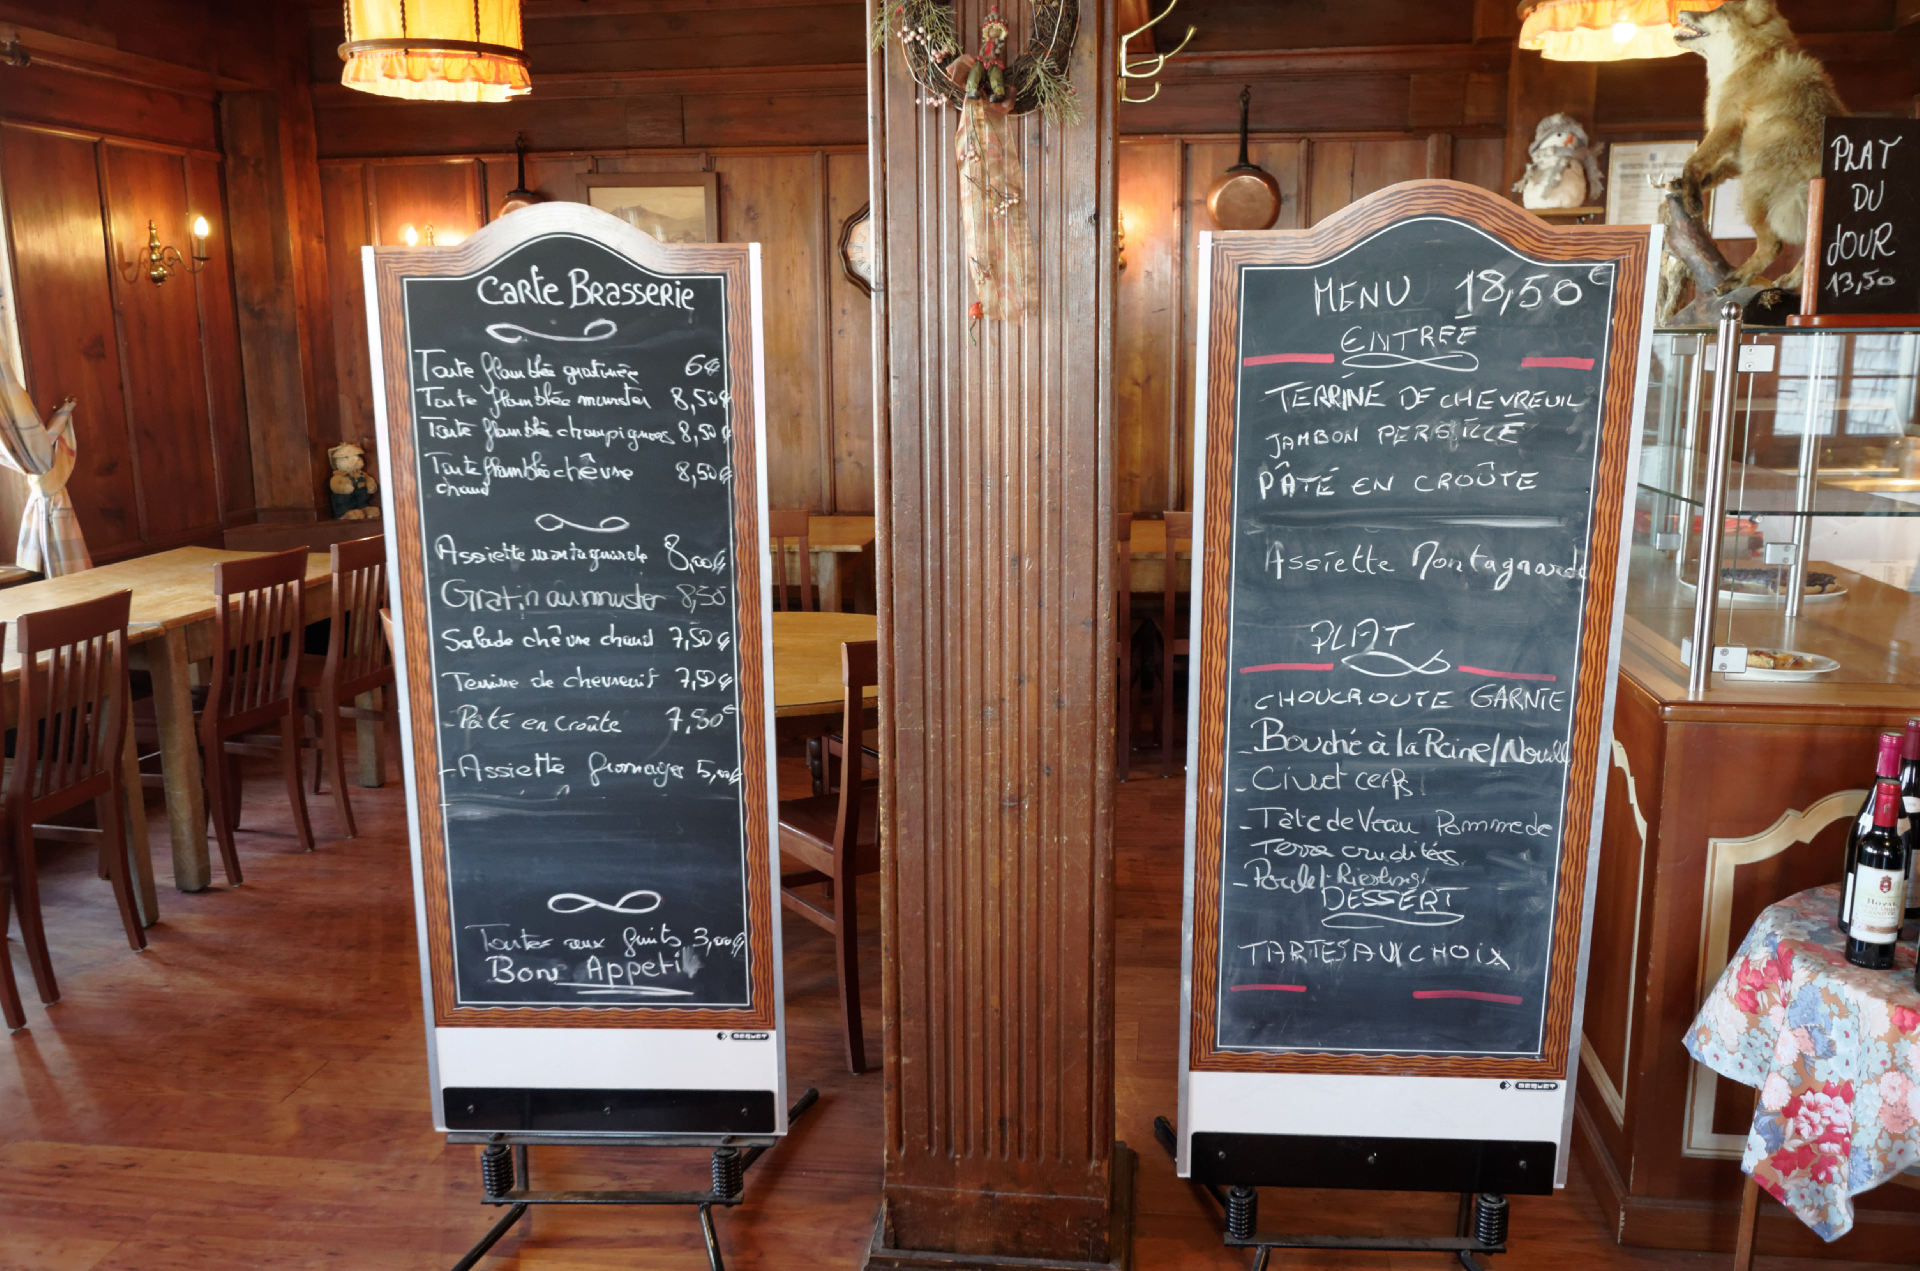 Carte Brasserie
Tarte flambée gratinée 6€
Tarte flambée munster 8,50€
Tarte flambée champignons 8,50€
Tarte flambée chêvre 8,50€
chaud
Assiette montagnarde 8,00€
Gratin au munster 8,50
Salade chêvre chaud 7,50€
Terrine de chevreuil 7,50€
- Pâté en croûte 7,50€
- Assiette fromages 5,00€
Tartes aux fruits 3,00€
Bon Appetit
MENU 18,50€
ENTREE
TERRINE DE CHEVREUIL
JAMBON PERSILLÉ
PÂTÉ EN CROÛTE
Assiette Montagnarde
PLAT
CHOUCROUTE GARNIE
- Bouché à la Reine/Nouille
- Civet cerfs
- Tête de Veau Pomme de
Terre crudités
- Poulet Riesling
DESSERT
TARTES AU CHOIX
PLAT
DU
JOUR
13,50